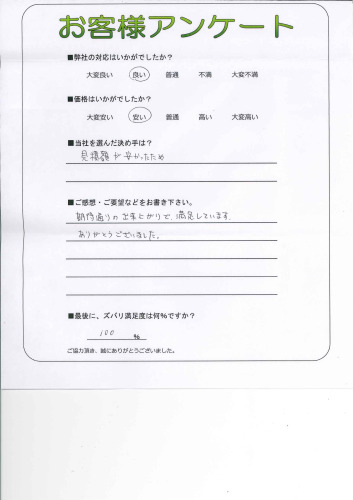 お客様アンケート
■弊社の対応はいかがでしたか？
大変良い 良い 普通 不満 大変不満
■価格はいかがでしたか？
大変安い 安い 普通 高い 大変高い
■当社を選んだ決め手は？
見積額が安かったため
■ご感想・ご要望などをお書き下さい。
期待通りの出来上がりで、満足しています。
ありがとうございました。
■最後に、ズバリ満足度は何%ですか？
100 %
ご協力頂き、誠にありがとうございました。